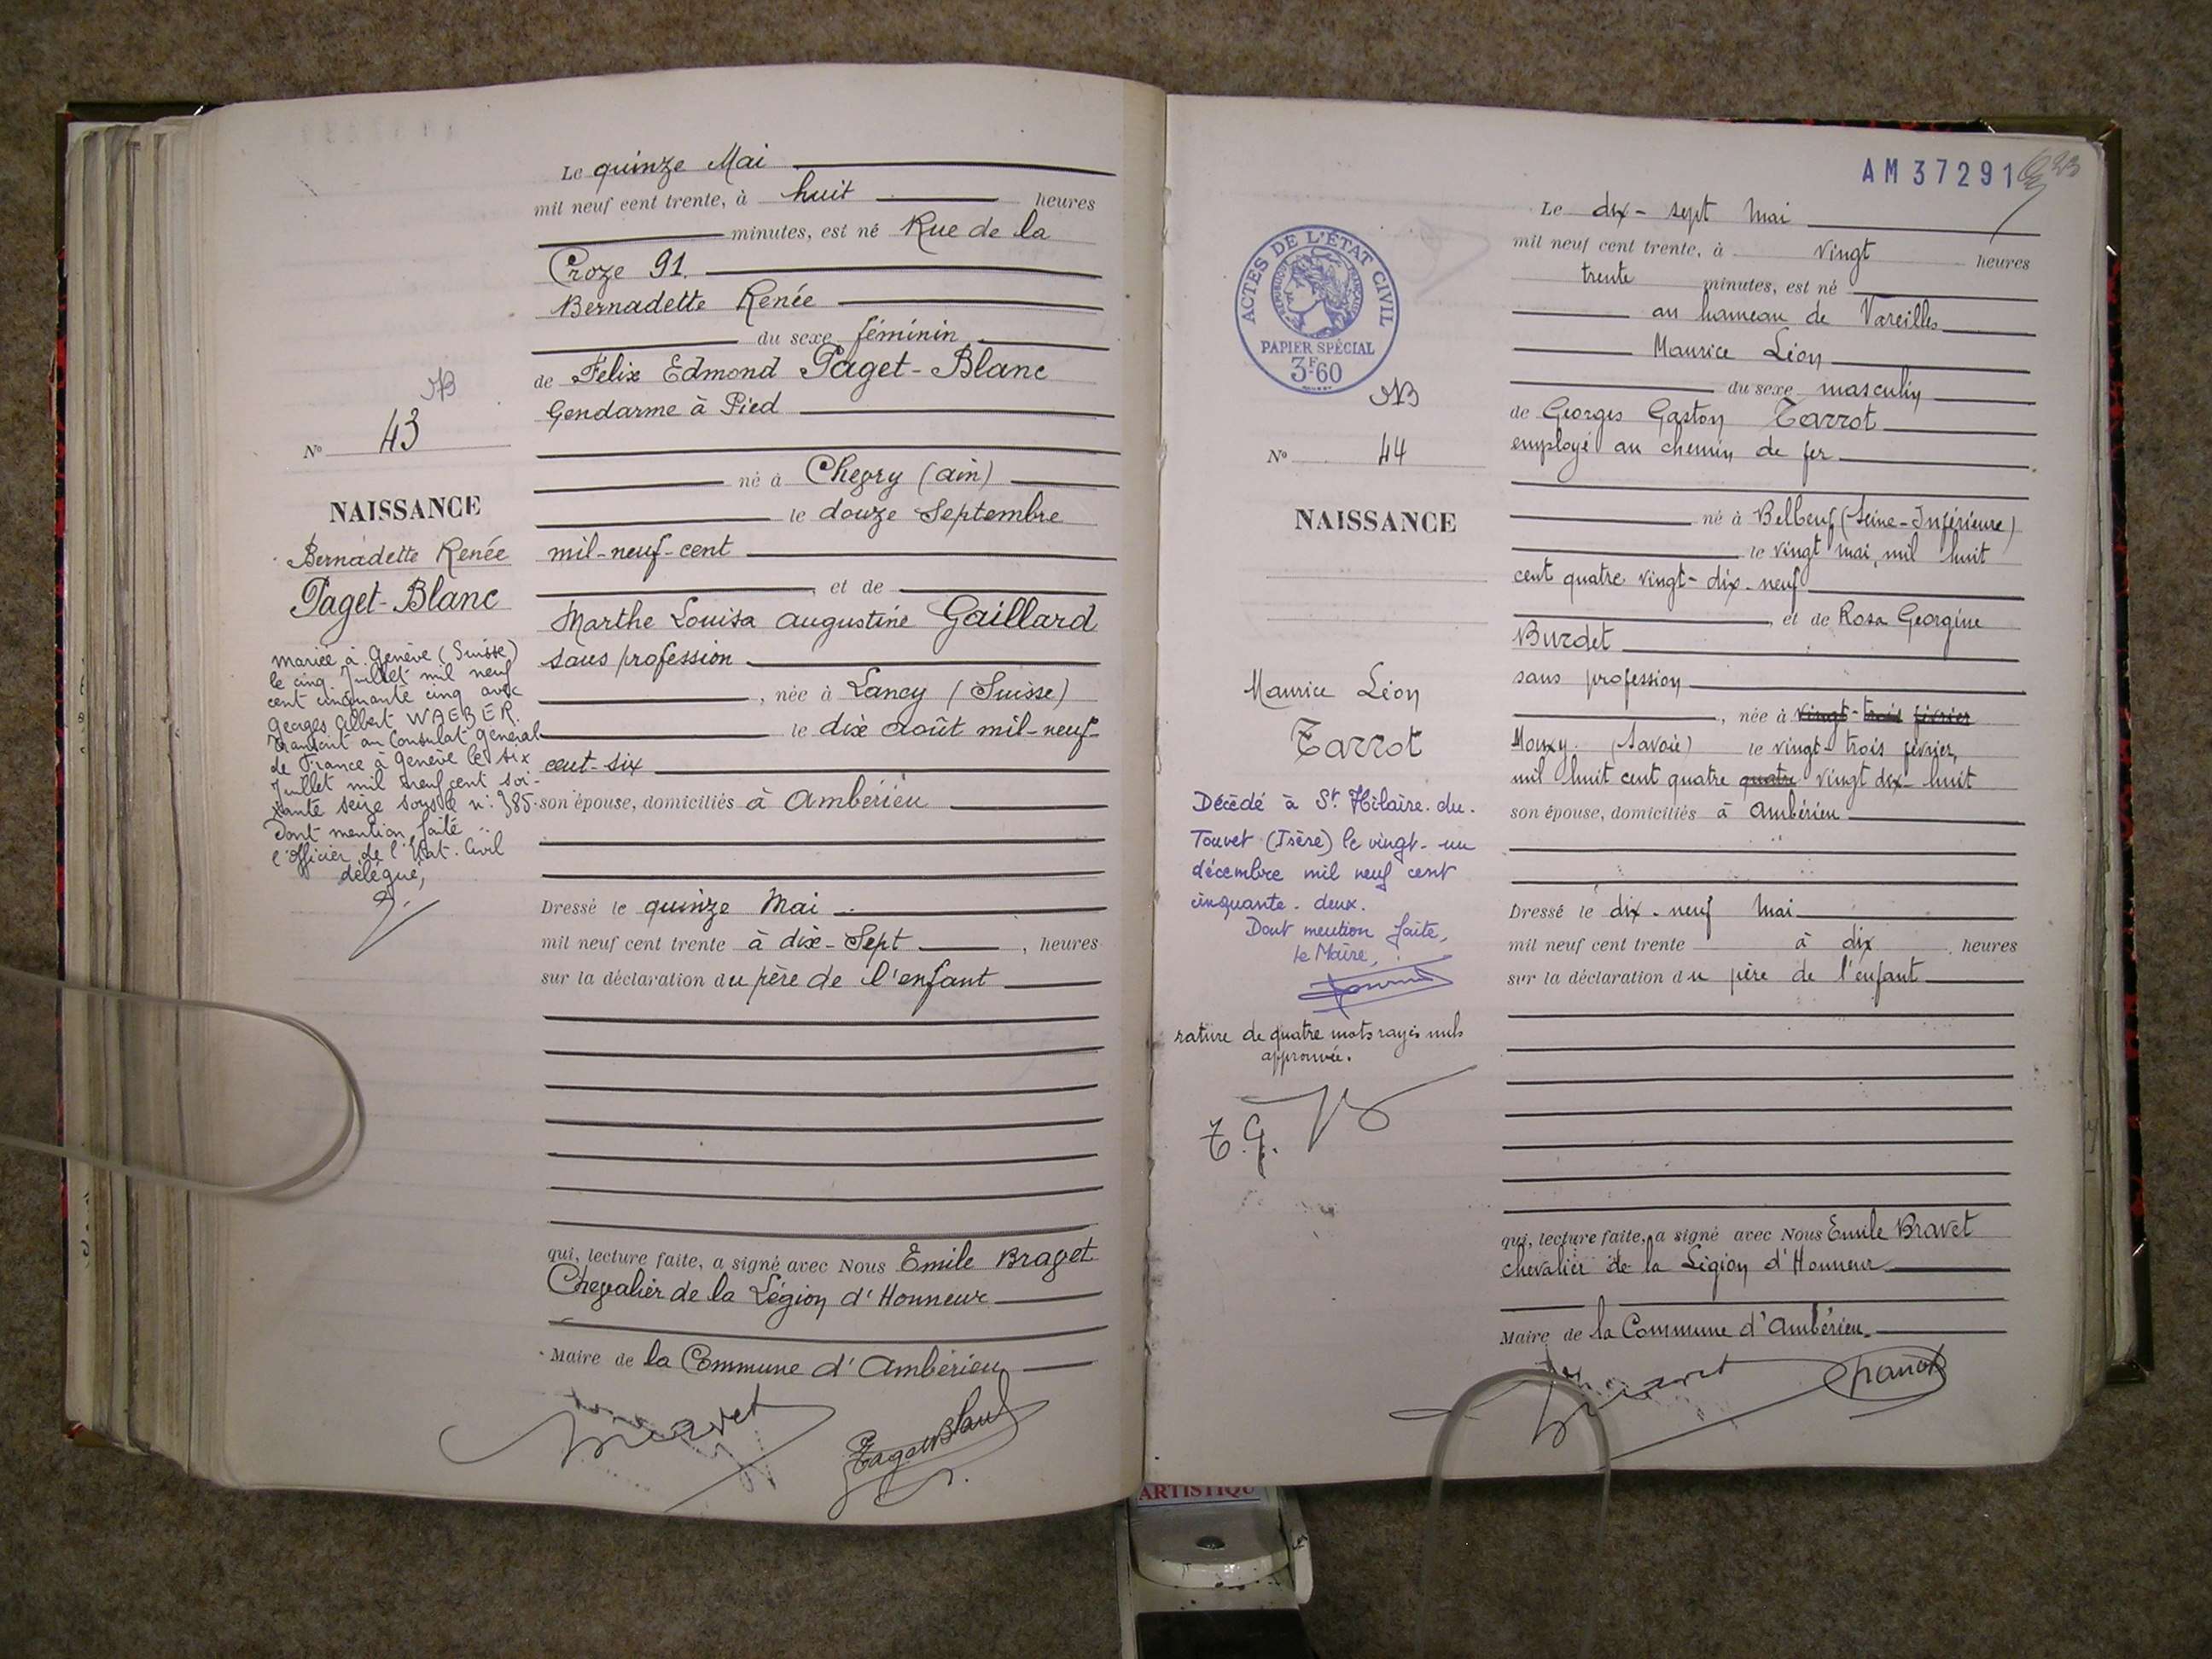 Le quinze Mai
mil neuf cent trente, à huit heures
minutes, est né Rue de la
Croze 91.
Bernadette Renée
du sexe féminin
de Félix Edmond Paget-Blanc
Gendarme à Pied
né à Chevry (ain)
le douze Septembre
mil-neuf-cent
et de
Marthe Louisa Augustine Gaillard
sans profession
, née à Lancy (Suisse)
le dix Août mil-neuf-
cent-six
son épouse, domiciliés à Ambérieu
Dressé le quinze Mai
mil neuf cent trente à dix-Sept , heures
sur la déclaration du père de l'enfant
qui, lecture faite, a signé avec Nous Emile Bravet
Chevalier de la Légion d'Honneur
Maire de la Commune d'Ambérieu
Bravet
PagetBlanc
NB
N° 43
NAISSANCE
Bernadette Renée
Paget-Blanc
mariée à Genève (Suisse)
le cinq Juillet mil neuf
cent cinquante cinq avec
Georges Albert WAEBER.
Transcrit au Consulat Général
de France à Genève le six
Juillet mil neuf cent soi-
xante seize sous le n: 385.
Dont mention faite
l'Officier de l'Etat-Civil
délégué,
AM37291
ACTES DE L'ÉTAT CIVIL
RÉPUBLIQUE FRANÇAISE
PAPIER SPÉCIAL
3F.60
NB
N° 44
NAISSANCE
Maurice Léon
Tarrot
Décédé à St Hilaire-du-
Touvet (Isère) le vingt-un
décembre mil neuf cent
cinquante-deux.
Dont mention faite,
le Maire,
rature de quatre mots rayés nuls
approuvée.
T.G.
Le dix-sept mai
mil neuf cent trente, à vingt heures
trente minutes, est né
au hameau de Vareilles
Maurice Léon
du sexe masculin
de Georges Gaston Tarrot
employé au chemin de fer
né à Belbeuf (Seine-Inférieure)
le vingt mai, mil huit
cent quatre vingt-dix-neuf
, et de Rosa Georgine
Burdet
sans profession
, née à vingt-trois février
Mouxy (Savoie) le vingt-trois février,
mil huit cent quatre quatre vingt dix-huit
son épouse, domiciliés à Ambérieu
Dressé le dix-neuf Mai
mil neuf cent trente à dix heures
sur la déclaration du père de l'enfant
qui, lecture faite, a signé avec Nous Emile Bravet
chevalier de la Légion d'Honneur
Maire de la Commune d'Ambérieu
Bravet
ARTISTIQU